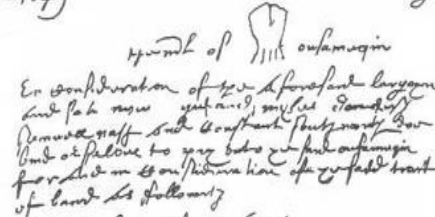 of ousamequin
In Consideration of the aforesaid bargain
and sale wee ye said, myles Standish
Samuell nash and Constant Southworth doe
bind orselves to pay unto ye said ousamequin
for and in Consideration of ye said tract
of land as followeth